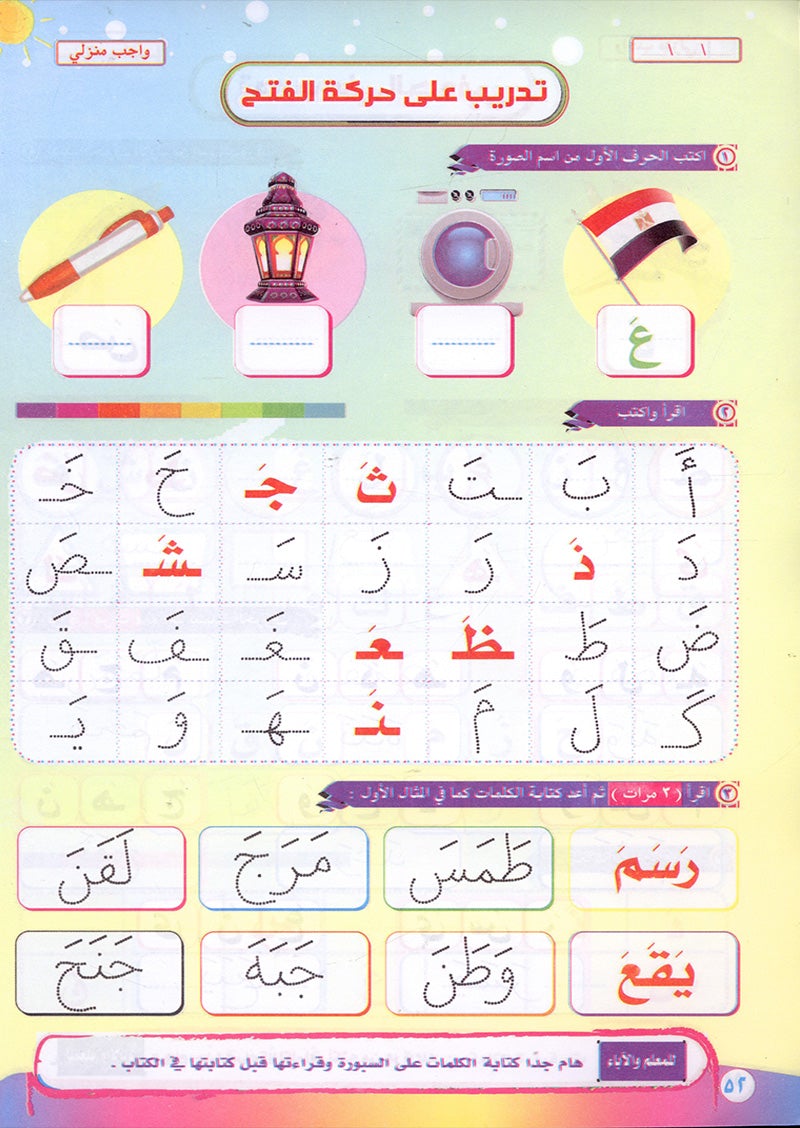 واجب منزلي
\ \
تدريب على حركة الفتح
١ اكتب الحرف الأول من اسم الصورة
عَ
٢ اقرأ واكتب
أَ بَ ـتَ ثَ جَـ حَ خَـ
دَ ذَ رَ زَ سَـ ـشَـ ـصَ
ضَ طَ ـظَـ ـعَـ ـغَـ ـفَ ـقَ
كَـ لَ مَ ـنَـ ـهَـ وَ يَـ
٣ اقرأ ( ٣ مرات ) ثم أعد كتابة الكلمات كما في المثال الأول :
رَسَمَ طَمَسَ مَرَجَ لَقَنَ
يَقَعَ وَطَنَ جَبَهَ جَنَحَ
للمعلم والآباء هام جدًا كتابة الكلمات على السبورة وقراءتها قبل كتابتها في الكتاب .
٥٢